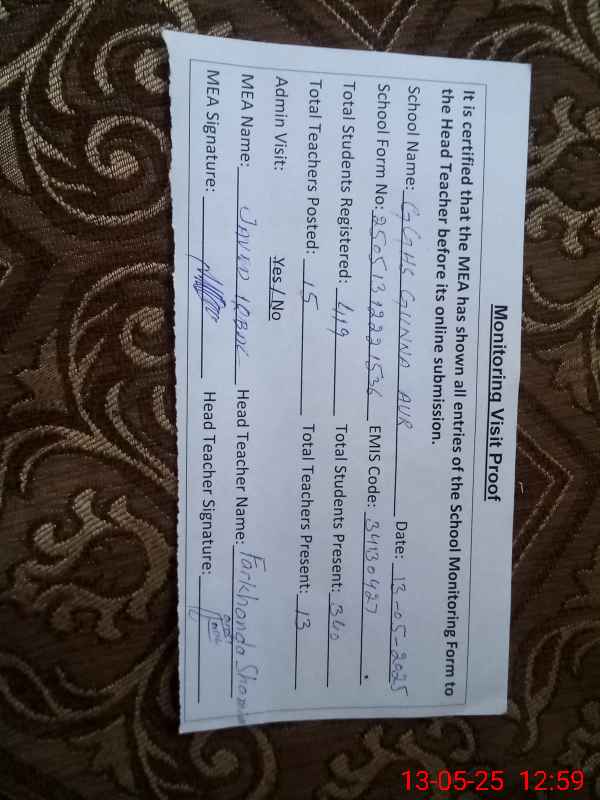 Monitoring Visit Proof
It is certified that the MEA has shown all entries of the School Monitoring Form to
the Head Teacher before its online submission.
School Name: GGHS GUNNA AUR Date: 13-05-2025
School Form No: 25051312221536 EMIS Code: 34130427
Total Students Registered: 419 Total Students Present: 340
Total Teachers Posted: 15 Total Teachers Present: 13
Admin Visit: Yes / No
MEA Name: JAVED IQBAL Head Teacher Name: Farkhanda
MEA Signature: Head Teacher Signature:
13-05-25 12:59